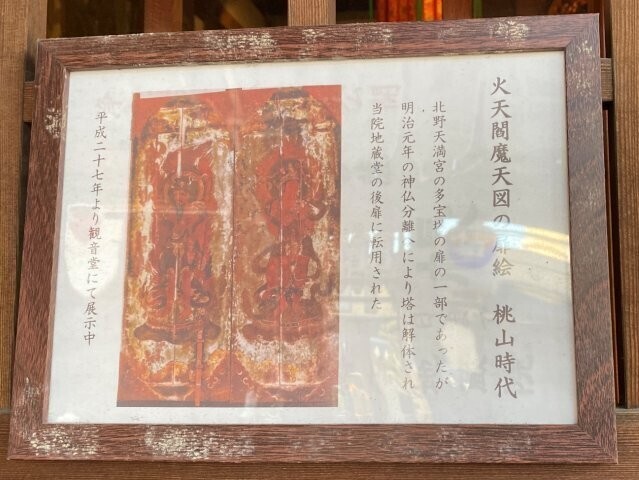 火天閻魔天図の扉絵 桃山時代
北野天満宮の多宝塔の扉の一部であったが
明治元年の神仏分離へにより塔は解体され
当院地蔵堂の後扉に転用された
平成二十七年より観音堂にて展示中